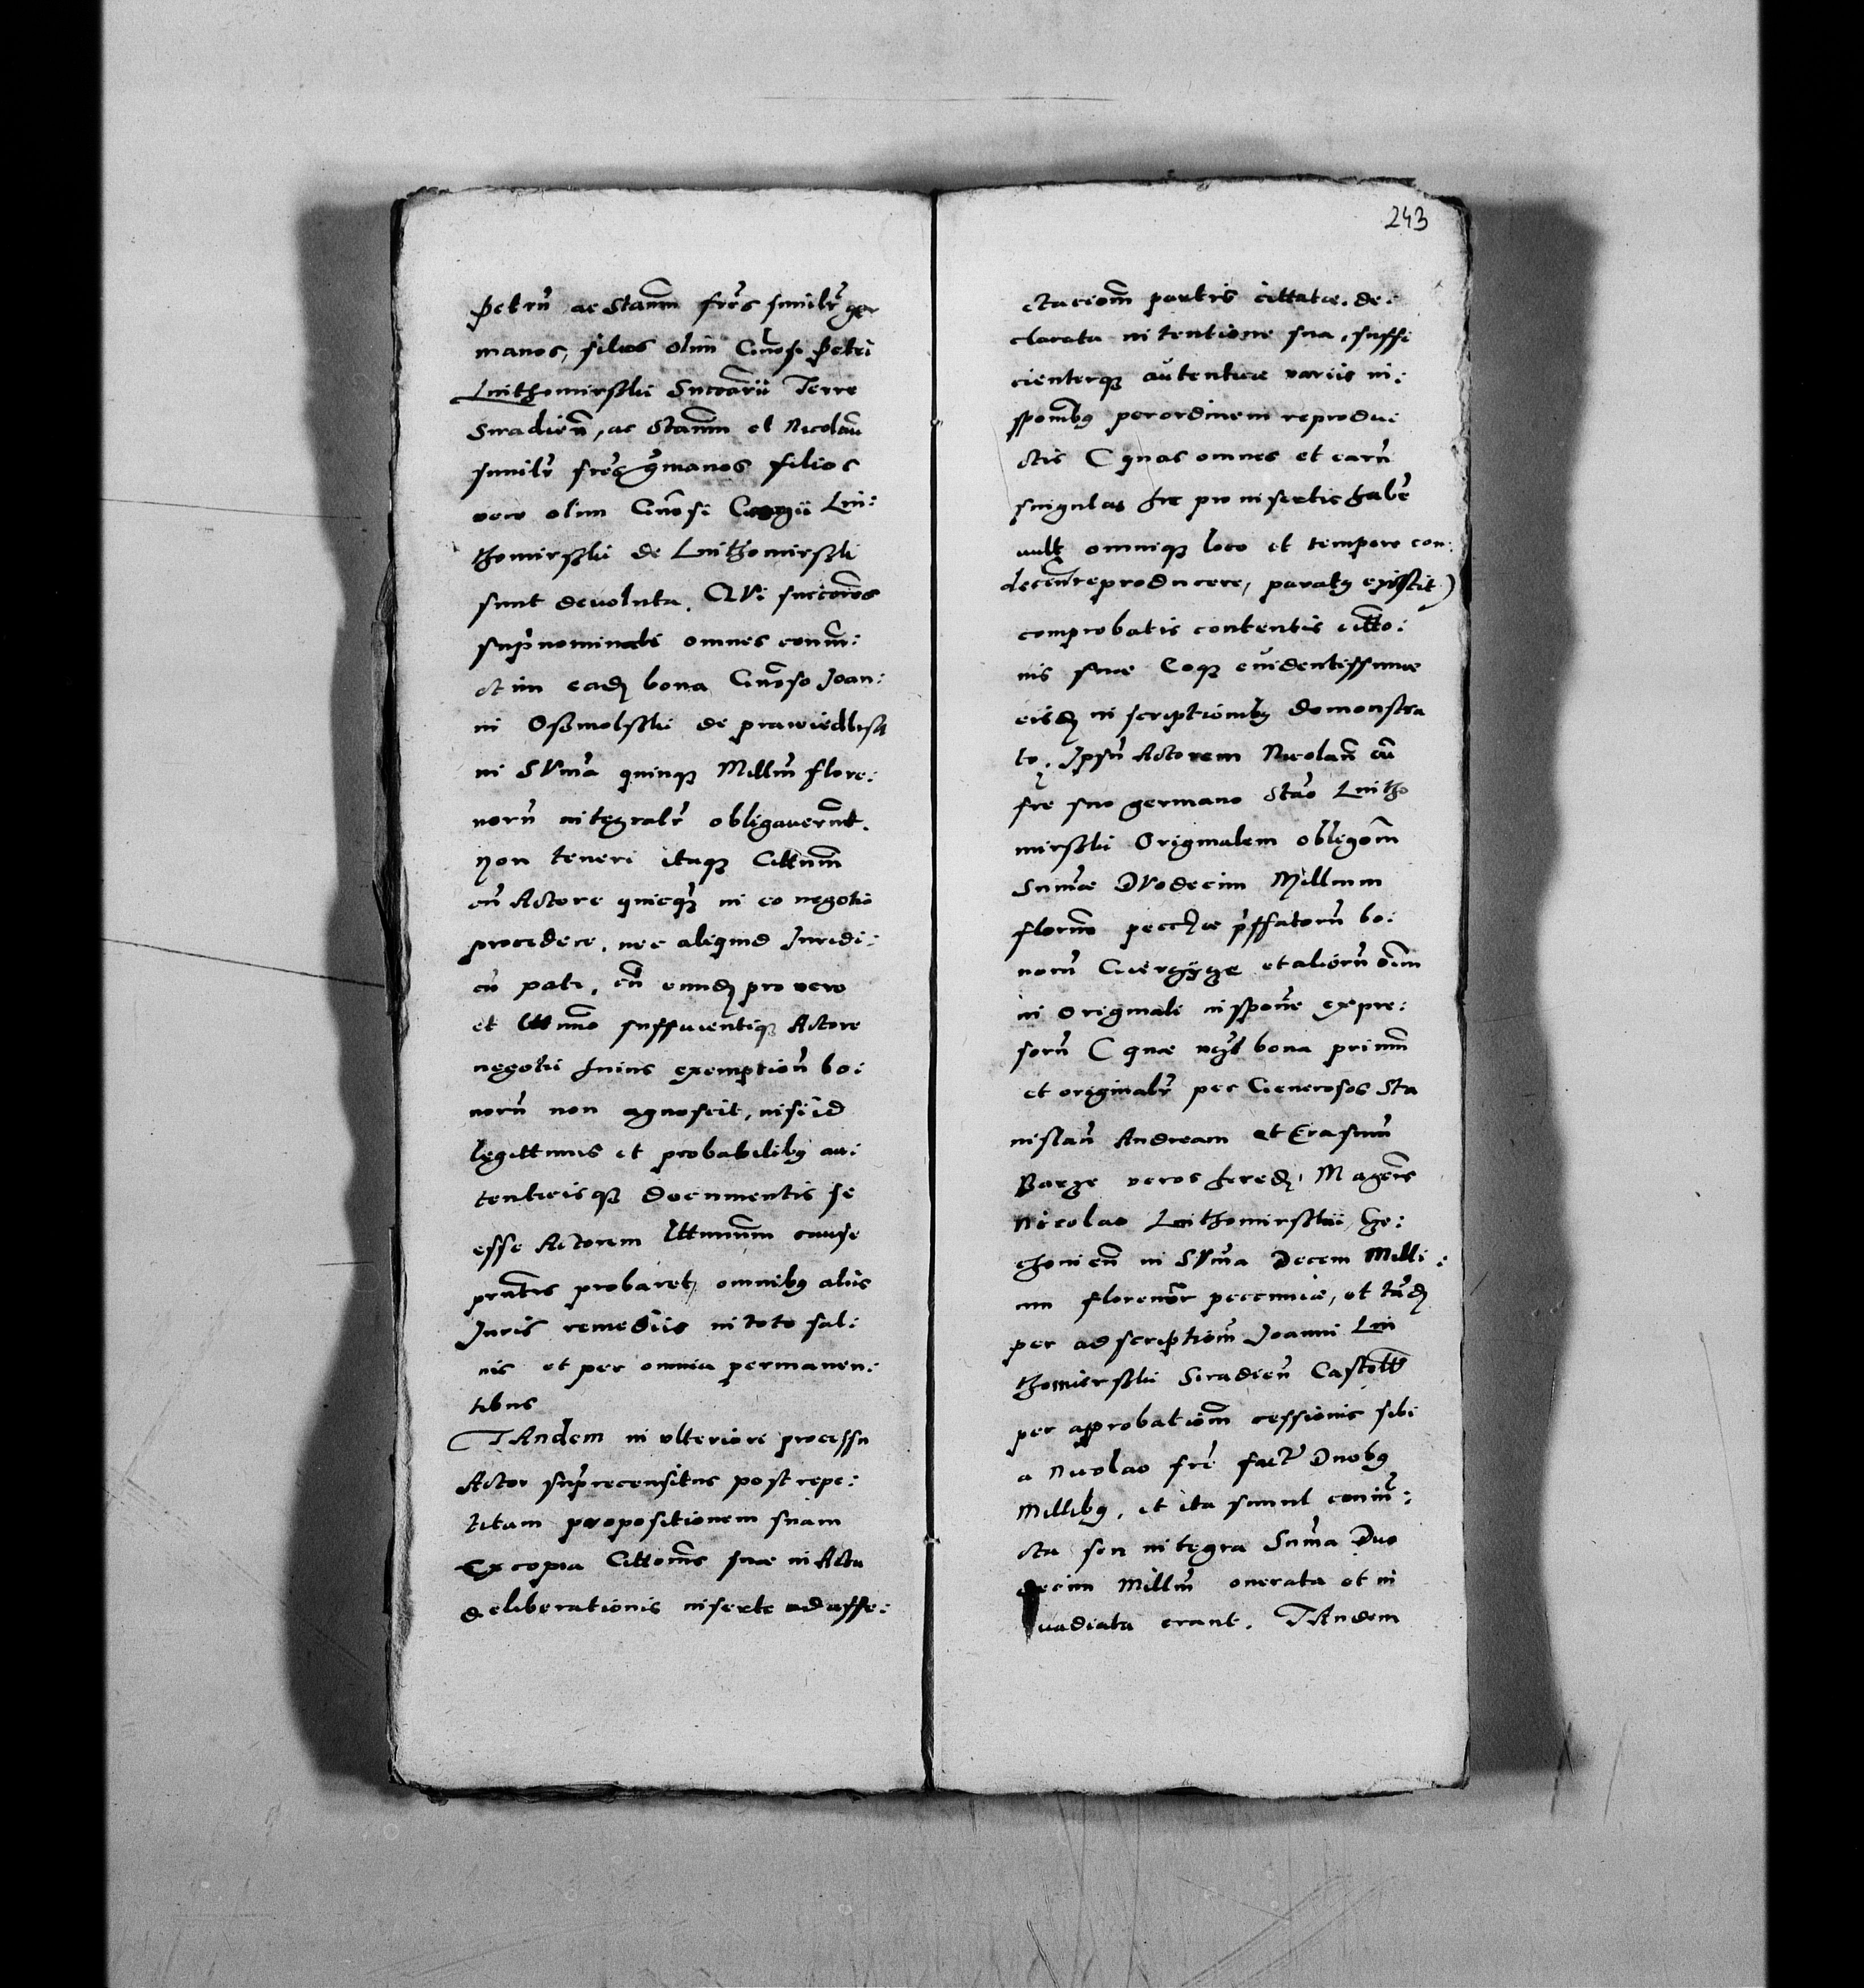 Petrũ ac Stanm̃ frẽs similr̃ ger
manos, filios olim Gñosi Petri
Luthomirski Succãrii Terre
Siradieñ, ac Stanm̃ et Nicolaũ
similr̃ frẽs gr̃manos filios
vero olim Gñosi Lu:
thomirski de Luthomirsk
sunt devoluta. QVi successores
supr̃nominati omnes coniũ:
ctim eadẽ bona Gñoso Joan:
ni Osmolski de prawiedliss
in SVm̃a quinq̃ Milliũ flore:
norũ integralr̃ obligaverũt.
Non teneri itaq̃ Cittatum
cũ Actore quicq̃ in eo negotio
procedere, nec aliquid Juridi:
cũ pati, cũ eundẽ pro vero
et lttimo sufficientiq̃ Actore
negotii huius exemptionũ bo:
norũ non agnoscit, nisi id
legittimis et probabilibꝯ au:
tenticisq̃ documentis se
esse Actorem lttimum causse
pñtis probaret, omnibꝯ aliis
Juris remediis in toto sal:
vis et per omnia permanen:
tibus
TAndem in ulteriori processu
Actor supr̃recensitus post repe:
titam propositionem suam
Ex copia Cittonis suae in Actu
deliberationis inserte ad affe:
243
ctationem partis cittatae, de:
clarata in tentione sua, suffi
cienterq̃ autenticae variis in:
sponibꝯ per ordinem reprodu
ctis ( quas omnes et earũ
singulas hic pro insertis habẽ
vult omniq̃ loco et tempore con:
decenti reproducere, paratꝯ existit)
comprobatis contentis citto:
nis suae Eoq̃ evidentissimae
eisdẽ in scriptionibꝯ demonstra
to. Ipsũ Actorem Nicolaũ cũ
frẽ suo germano Stão Lutho
mirski Originalem obligom̃
Sum̃ae DVodecim Millium
florenõ pecc̃iae pr̃ffatorũ bo:
norũ et aliorũ oĩm
in Originali inspone expre:
sorũ ( quae bona primũ
et originalr̃ per Generosos Sta
nislaũ Andream et Erasmũ
Barze veros heredẽ, Magcos
Nicolao Luthomirski,
in SVm̃a Decem Milli:
um florenor̃ peccuniae, et tãdẽ
per ad scriptionẽ Joanni Lu
thomirski Siradieñ Castoll
per approbationẽ cessionis sibi
a Nicolao frẽ factẽ Duobꝯ
Millibꝯ, et ita simul coniũ:
cta seu integra Sum̃a Duo
decim Milliũ onerata et in
vadiata erant. TAndem